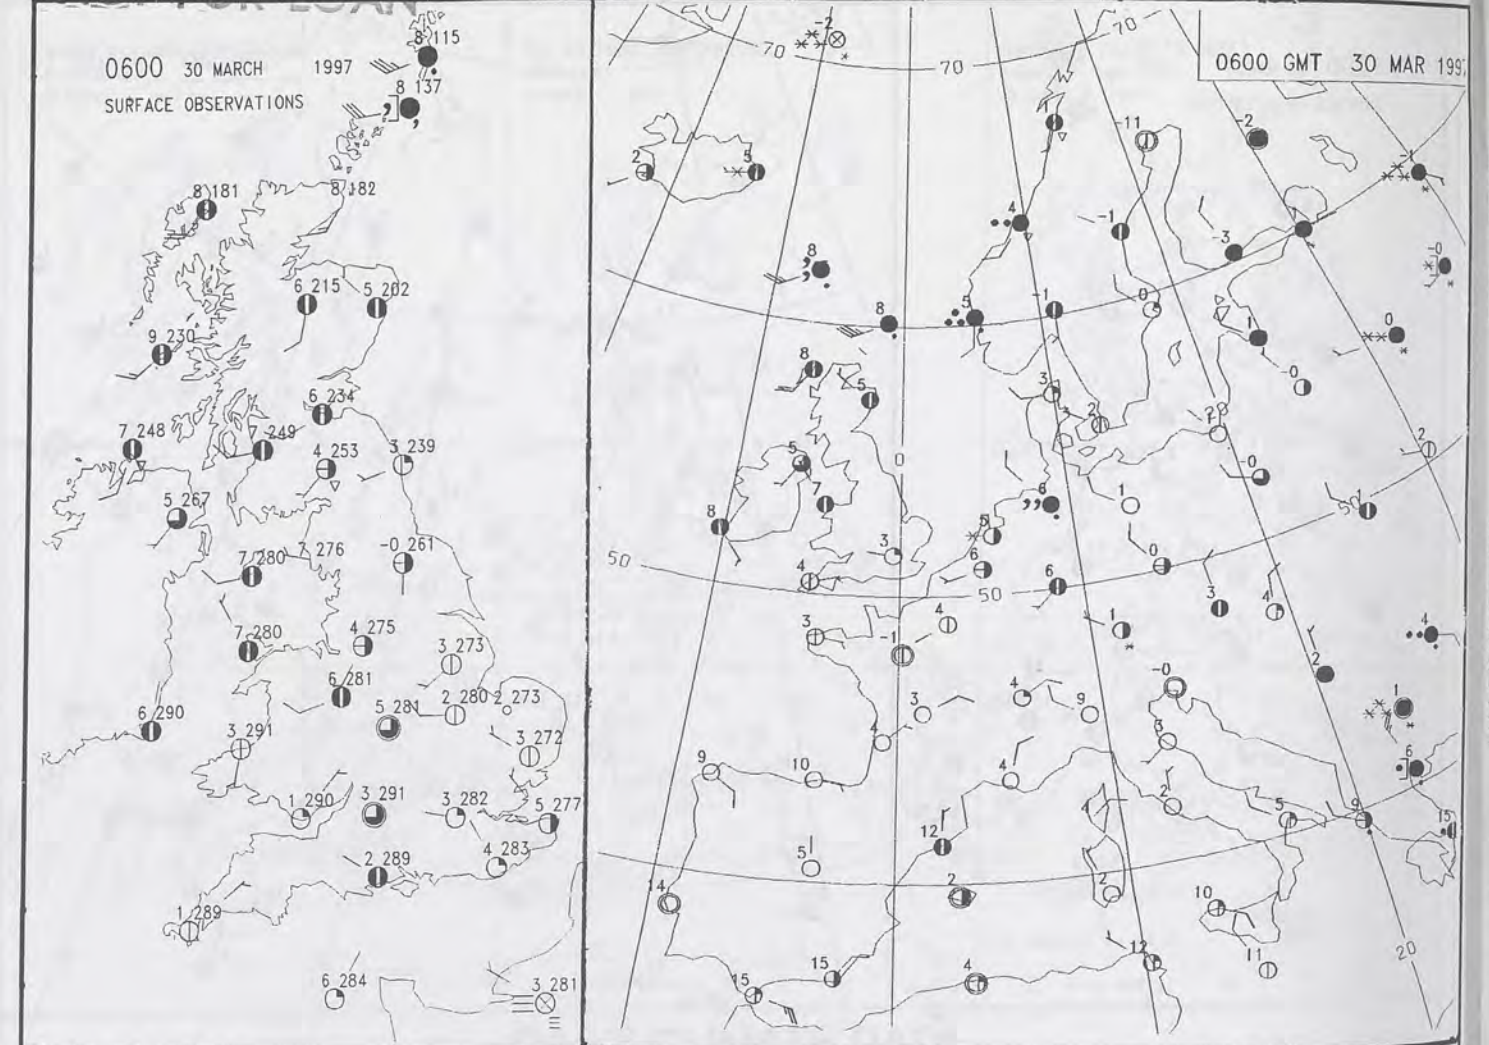 FOR LOAN
0600 30 MARCH 1997
SURFACE OBSERVATIONS
8 115
8 137
8 181
8 182
6 215
5 202
9 230
6 234
7 248
7 249
4 253
3 239
5 267
7 280
7 276
-0 261
7 280
4 275
3 273
6 281
5 281
2 280
2 273
6 290
3 291
3 272
1 290
3 291
3 282
5 277
2 289
4 283
1 289
6 284
3 281
0600 GMT 30 MAR 199
-2
70
70
70
1
-11
-2
-1
2
5
4
-1
-3
-0
8
8
5
-1
0
1
0
8
5
3
2
-0
2
5
0
7
8
6
1
-0
50
5
3
6
4
50
6
0
3
4
4
3
-1
4
1
2
-0
1
3
4
9
3
4
6
9
10
4
2
5
9
15
12
5
2
14
2
10
15
15
4
12
11
20